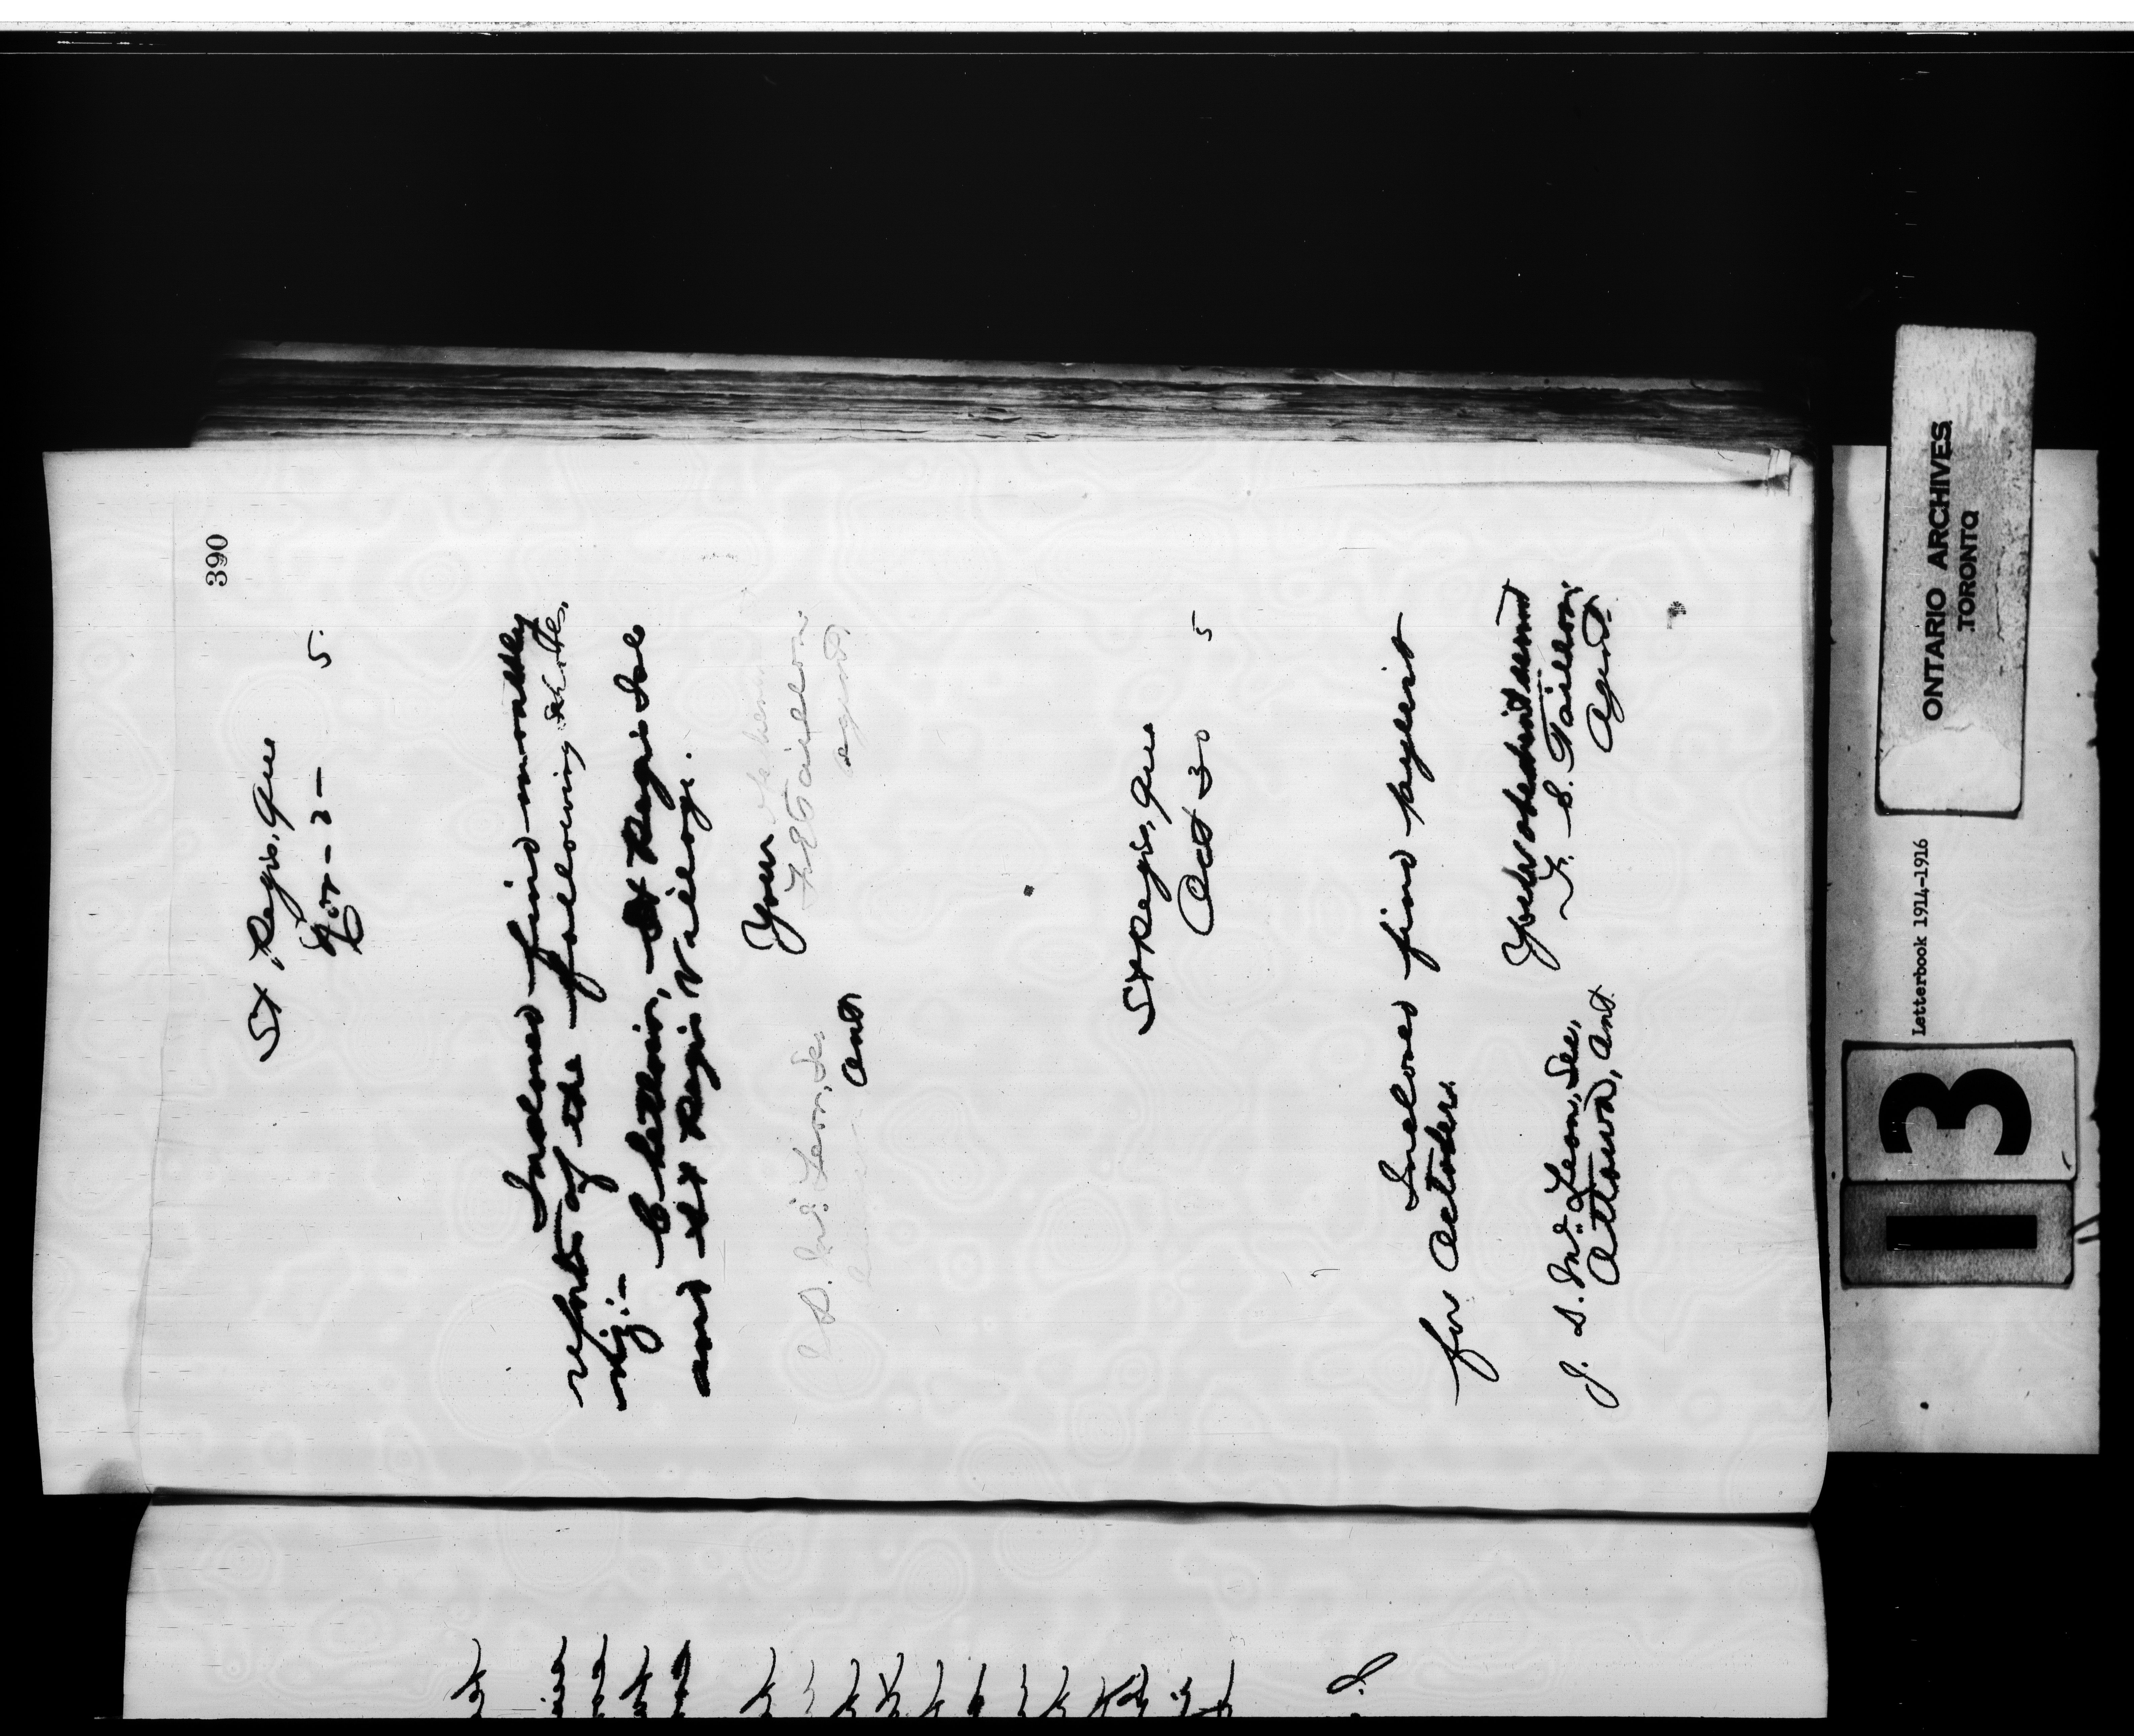 390
St Regis, Que
Nov - 2 - 5
Inclosed find monthly
reports of the following schools,
viz:-
Chenail, St Regis Isl
and St Regis Village.
Your
F. E. Taillon
agent
J D. McLean, Sec
Ont
St Regis, Que
Oct 30 5
Inclosed find paylist
for October.
Your obedient servant
F. E. Taillon,
Agent.
J. D. McLean, Sec,
Ottawa, Ont.
ONTARIO ARCHIVES
TORONTO
Letterbook 1914-1916
13